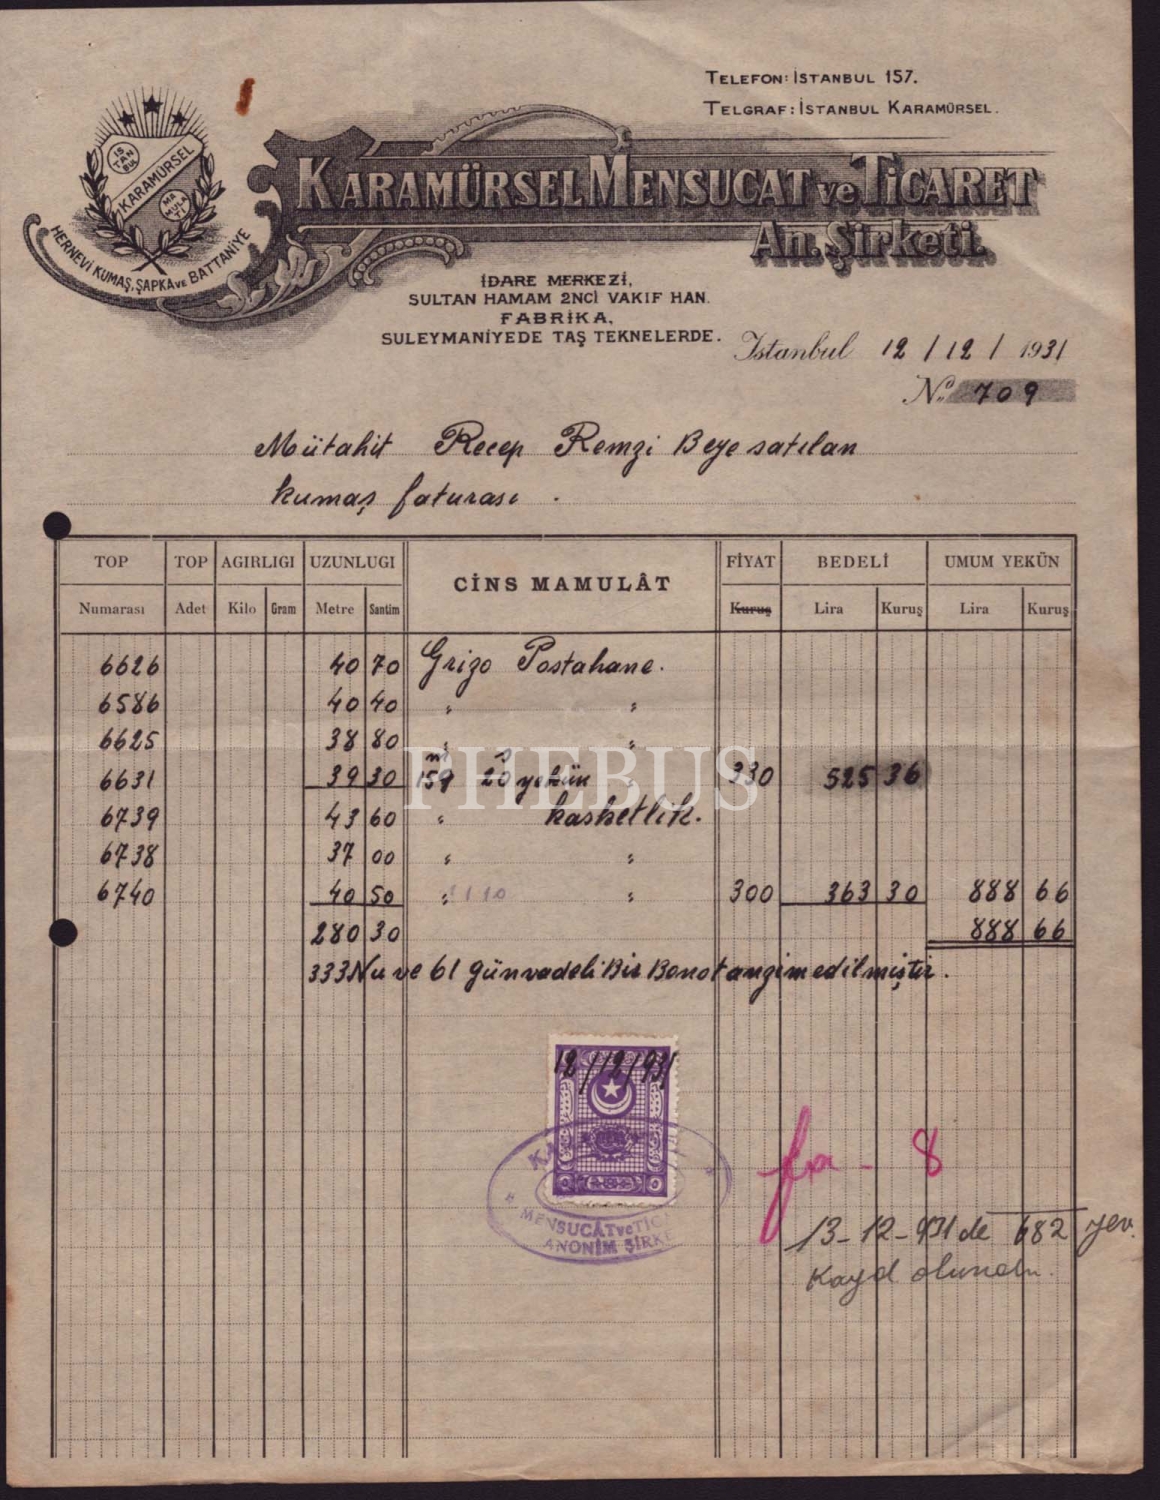 TELEFON: İSTANBUL 157.
TELGRAF: İSTANBUL KARAMÜRSEL.
İSTANBUL
KARAMÜRSEL
MAMULATI
HERNEVİ KUMAŞ, ŞAPKA VE BATTANİYE
KARAMÜRSEL MENSUCAT VE TİCARET
An. Şirketi.
İDARE MERKEZİ,
SULTAN HAMAM 2NCİ VAKIF HAN.
FABRİKA,
SULEYMANİYEDE TAŞ TEKNELERDE.
Istanbul 12 / 12 / 1931
No. 709
Mütahit Recep Remzi Beye satılan
kumaş faturası.
TOP TOP AGIRLIGI UZUNLUGI CİNS MAMULÂT FİYAT BEDELİ UMUM YEKÜN
Numarası Adet Kilo Gram Metre Santim Kuruş Lira Kuruş Lira Kuruş
6626 40 70 Grizo Postahane.
6586 40 40 " "
6625 38 80 " "
6631 39 30 159 m 20 s yekün 330 525 36
6739 43 60 " kasketlik.
6738 37 00 " "
6740 40 50 " " 300 363 30 888 66
280 30 888 66
333 Nu ve 61 gün vadeli Bir Bono tanzim edilmiştir.
PHEBUS
12/12/931
MENSUCAT ve TİC
ANONİM ŞİRKE
8
13-12-931 de 682 yev.
Kayd olundu.